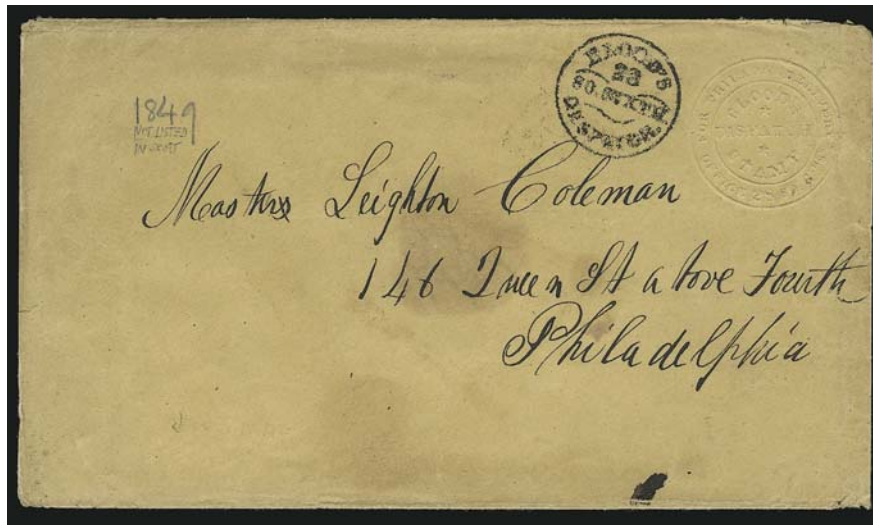 1849
NOT LISTED
BLOOD'S
28
DESPATCH.
FOR PHILAD
BLOOD'S
DESPATCH
STAMP
OFFICE 28 S.
Master Leighton Coleman
146 Queen St above Fourth
Philadelphia